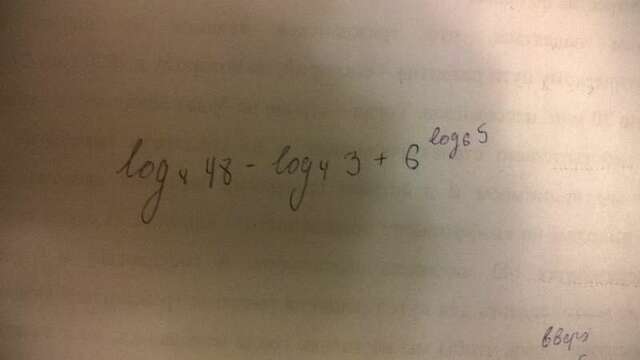 log₄ 48 - log₄ 3 + 6^log₆5
вверх